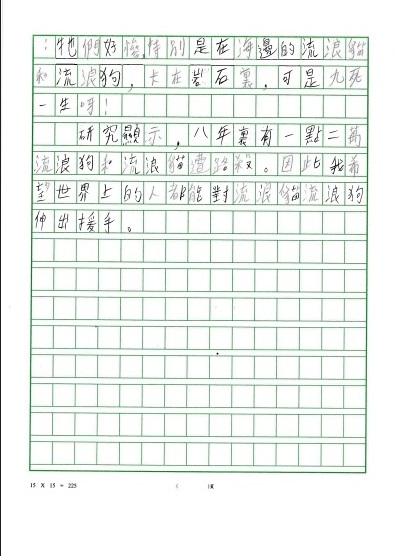 ：牠們好慘，特別是在海邊的流浪貓
和流浪狗，卡在岩石裏，可是九死
一生呀！
研究顯示，八年裏有一點二萬
流浪狗和流浪貓遭路殺。因此我希
望世界上的人都能對流浪貓流浪狗
伸出援手。
15 X 15 = 225 （ ）頁